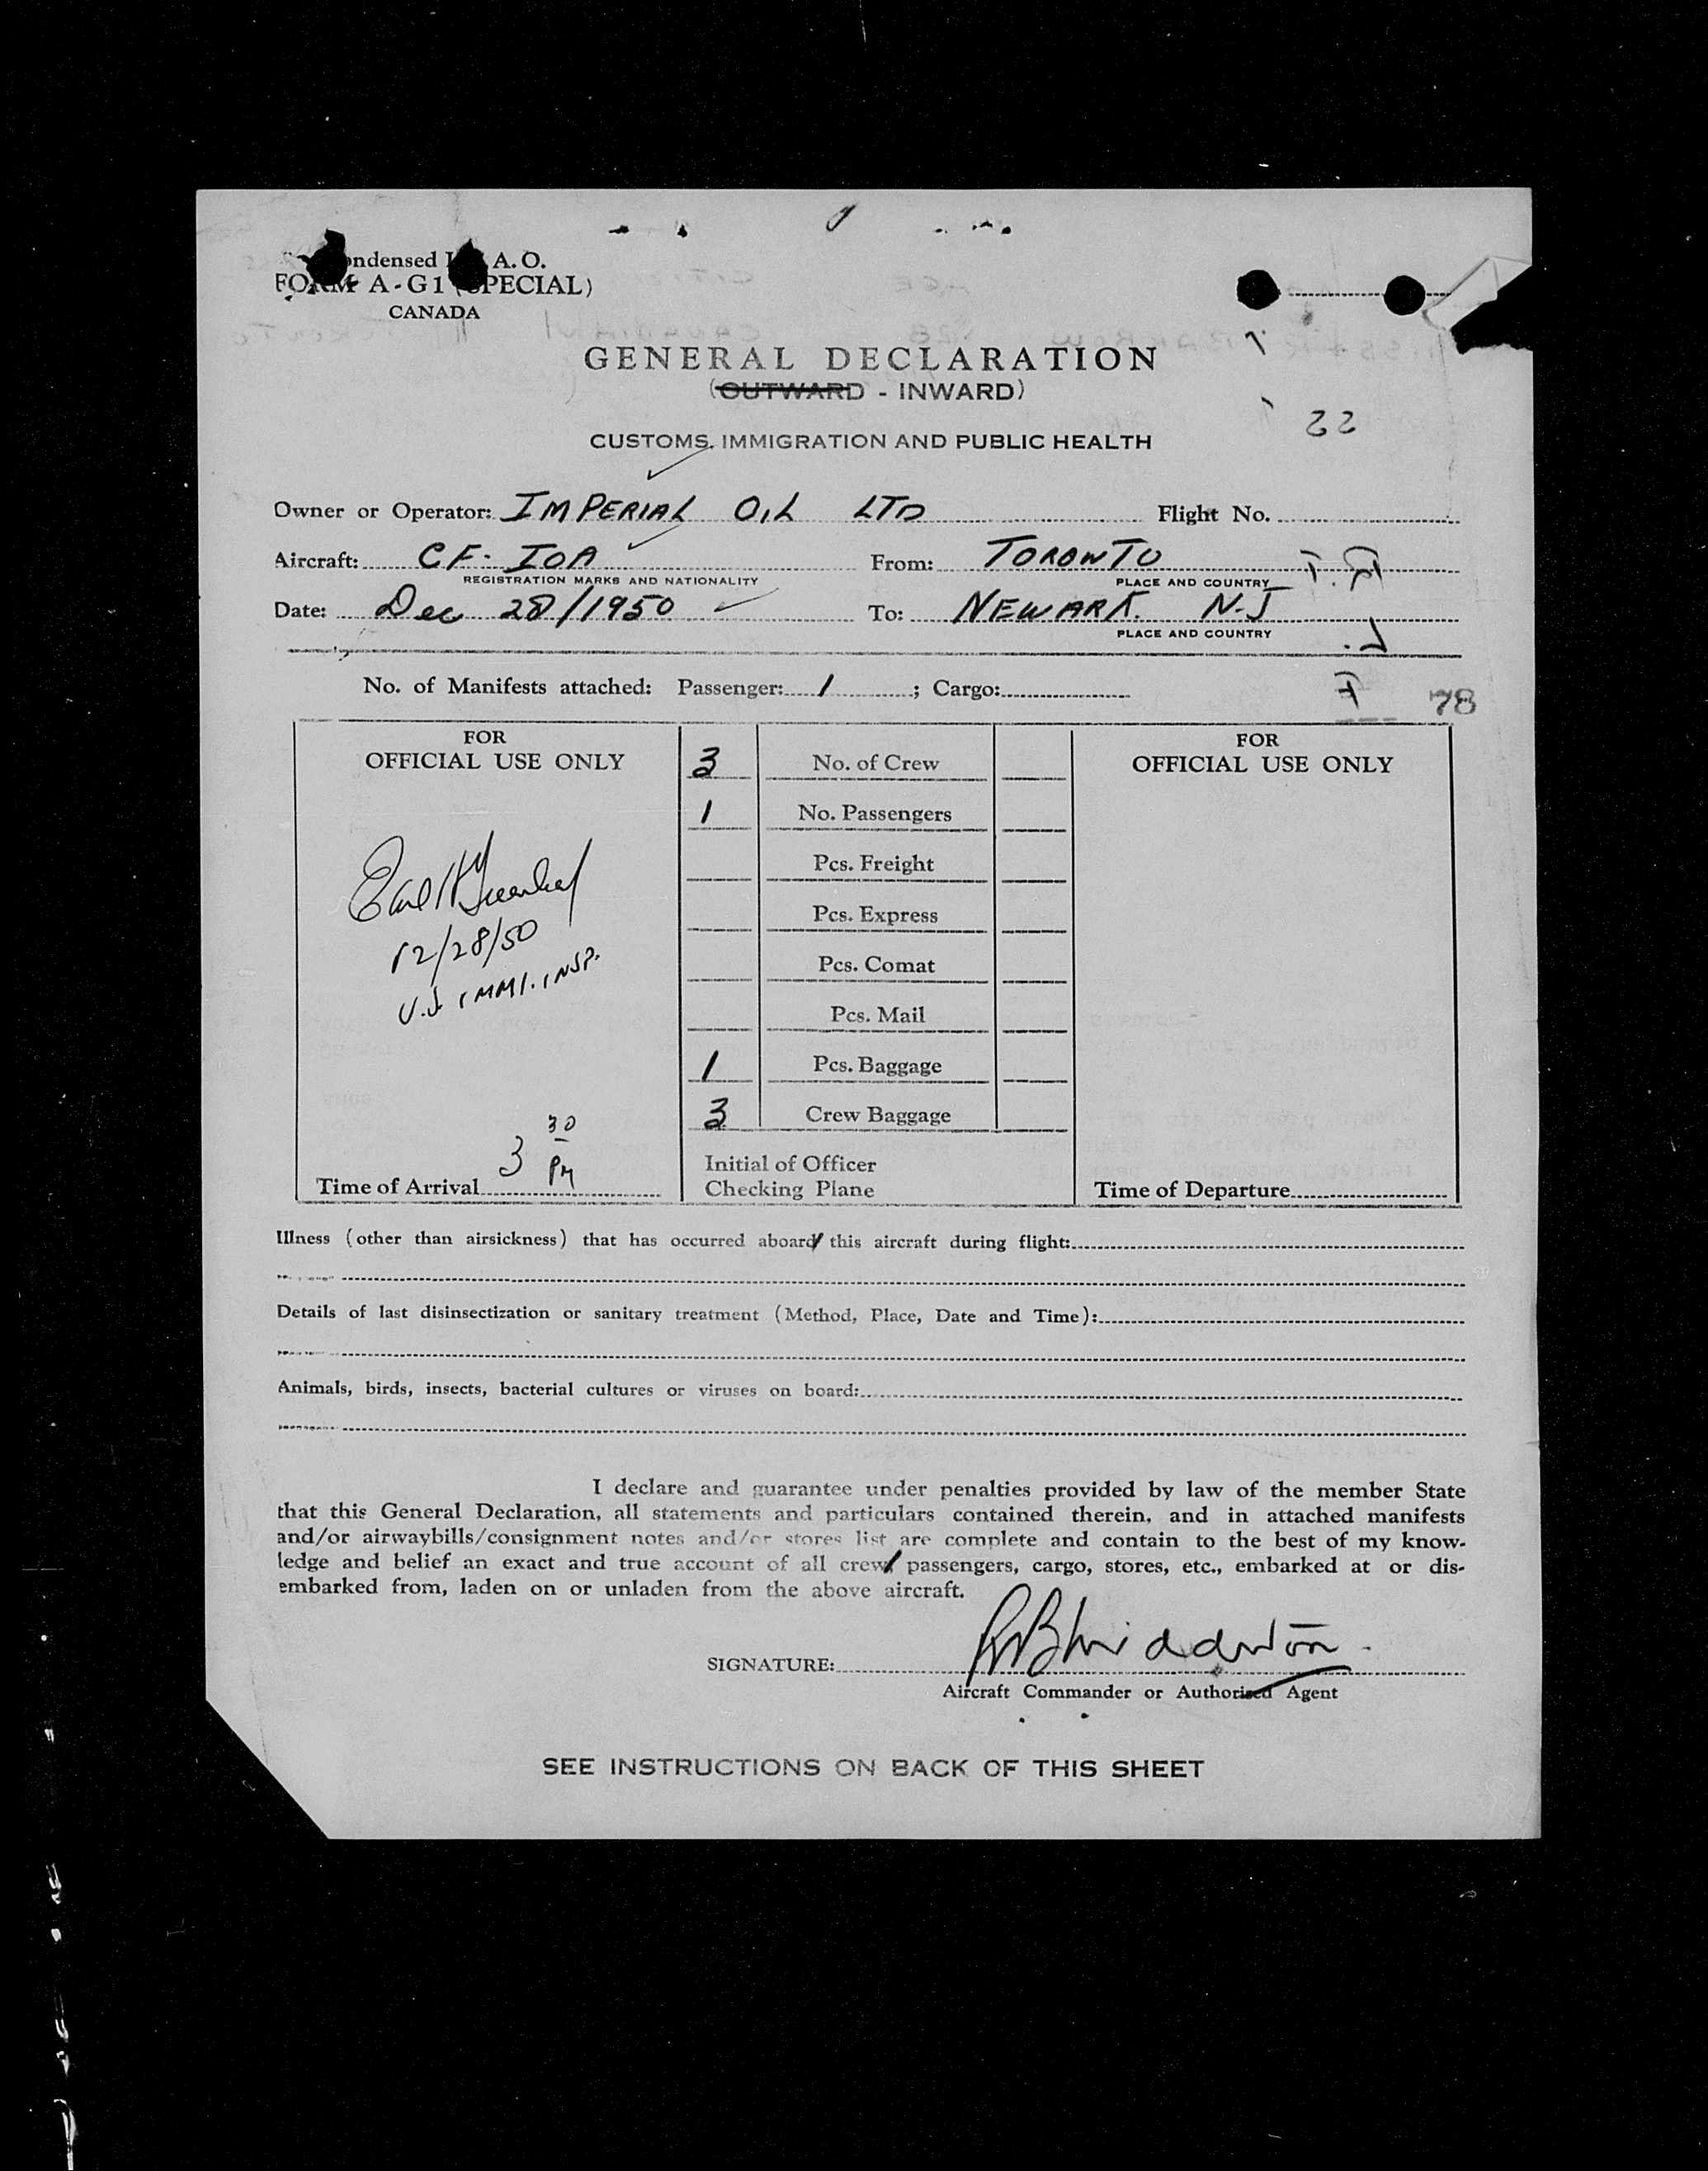 ondensed I A.O.
FORM A-G1 (SPECIAL)
CANADA
GENERAL DECLARATION
(OUTWARD - INWARD)
CUSTOMS, IMMIGRATION AND PUBLIC HEALTH
Owner or Operator: IMPERIAL OIL LTD Flight No.
Aircraft: CF-IOA From: TORONTO
REGISTRATION MARKS AND NATIONALITY PLACE AND COUNTRY
Date: Dec 28/1950 To: NEWARK. N-J
PLACE AND COUNTRY
No. of Manifests attached: Passenger: 1 ; Cargo:
78
FOR
OFFICIAL USE ONLY
12/28/50
U.S. IMMI. INSP.
3 30 PM
Time of Arrival
3 No. of Crew
1 No. Passengers
Pcs. Freight
Pcs. Express
Pcs. Comat
Pcs. Mail
1 Pcs. Baggage
3 Crew Baggage
Initial of Officer
Checking Plane
FOR
OFFICIAL USE ONLY
Time of Departure
Illness (other than airsickness) that has occurred aboard this aircraft during flight:
Details of last disinsectization or sanitary treatment (Method, Place, Date and Time):
Animals, birds, insects, bacterial cultures or viruses on board:
I declare and guarantee under penalties provided by law of the member State
that this General Declaration, all statements and particulars contained therein, and in attached manifests
and/or airwaybills/consignment notes and/or stores list are complete and contain to the best of my know-
ledge and belief an exact and true account of all crew, passengers, cargo, stores, etc., embarked at or dis-
embarked from, laden on or unladen from the above aircraft.
SIGNATURE:
Aircraft Commander or Authorised Agent
SEE INSTRUCTIONS ON BACK OF THIS SHEET